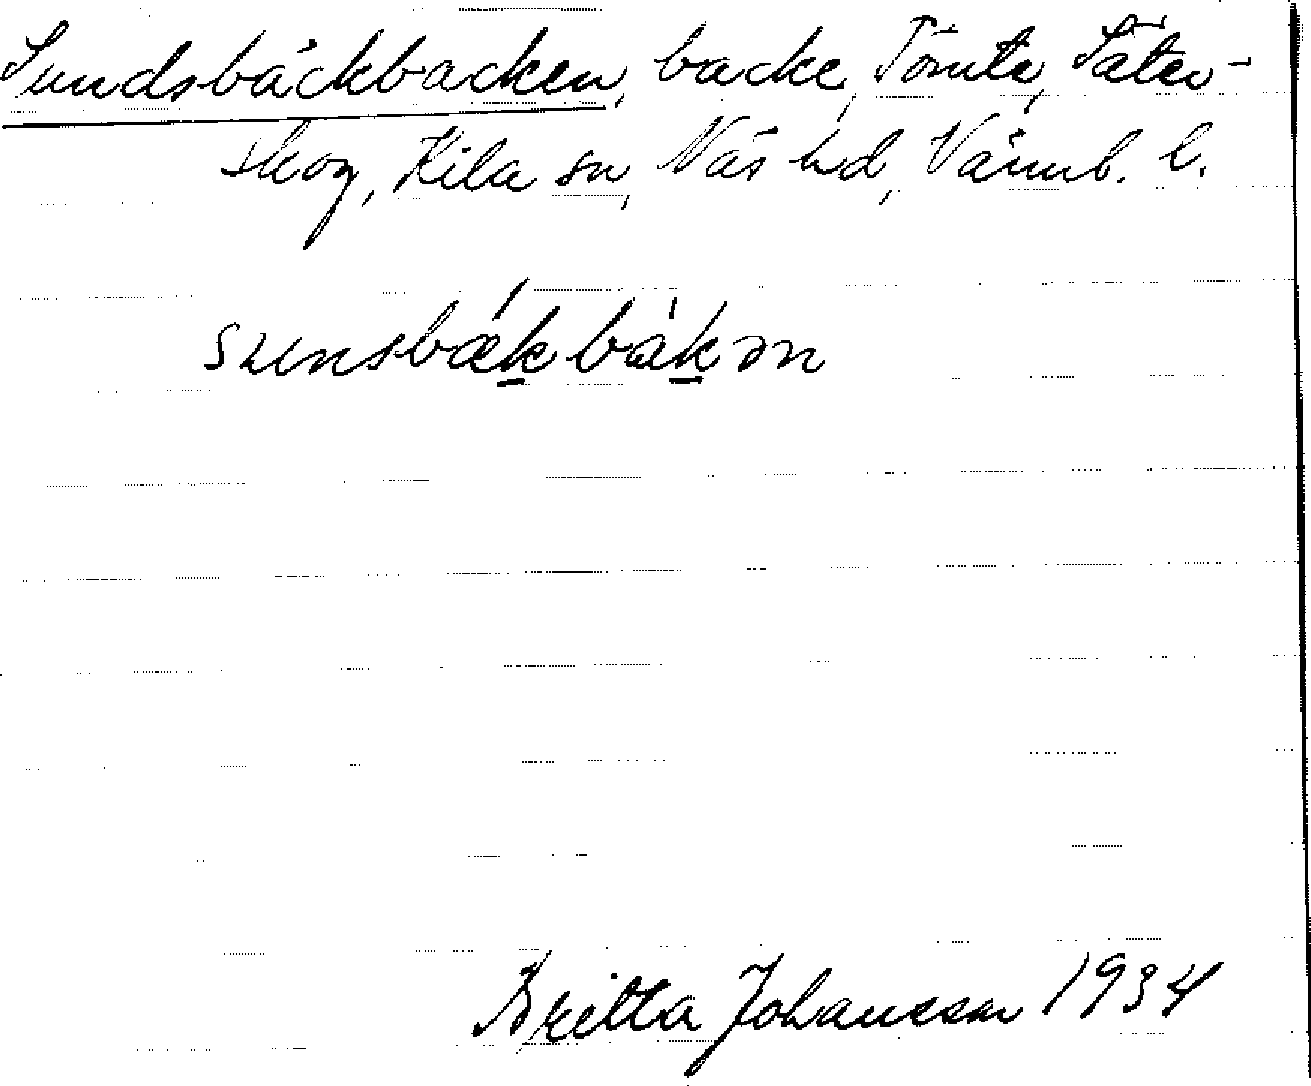 Sundsbäckbacken, backe, Tömte, Säter-
skog, Kila sn, Näs hd, Värml. l.
sunsbækbakən
Britta Johansson 1934